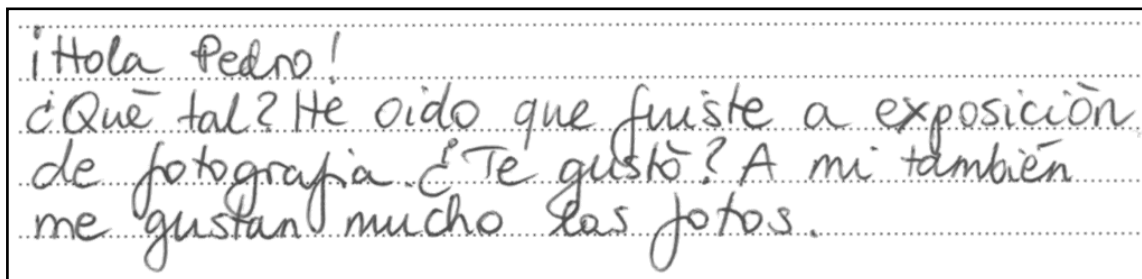 ¡Hola Pedro!
¿Qué tal? He oido que fuiste a exposición
de fotografia. ¿Te gustó? A mi también
me gustan mucho las fotos.